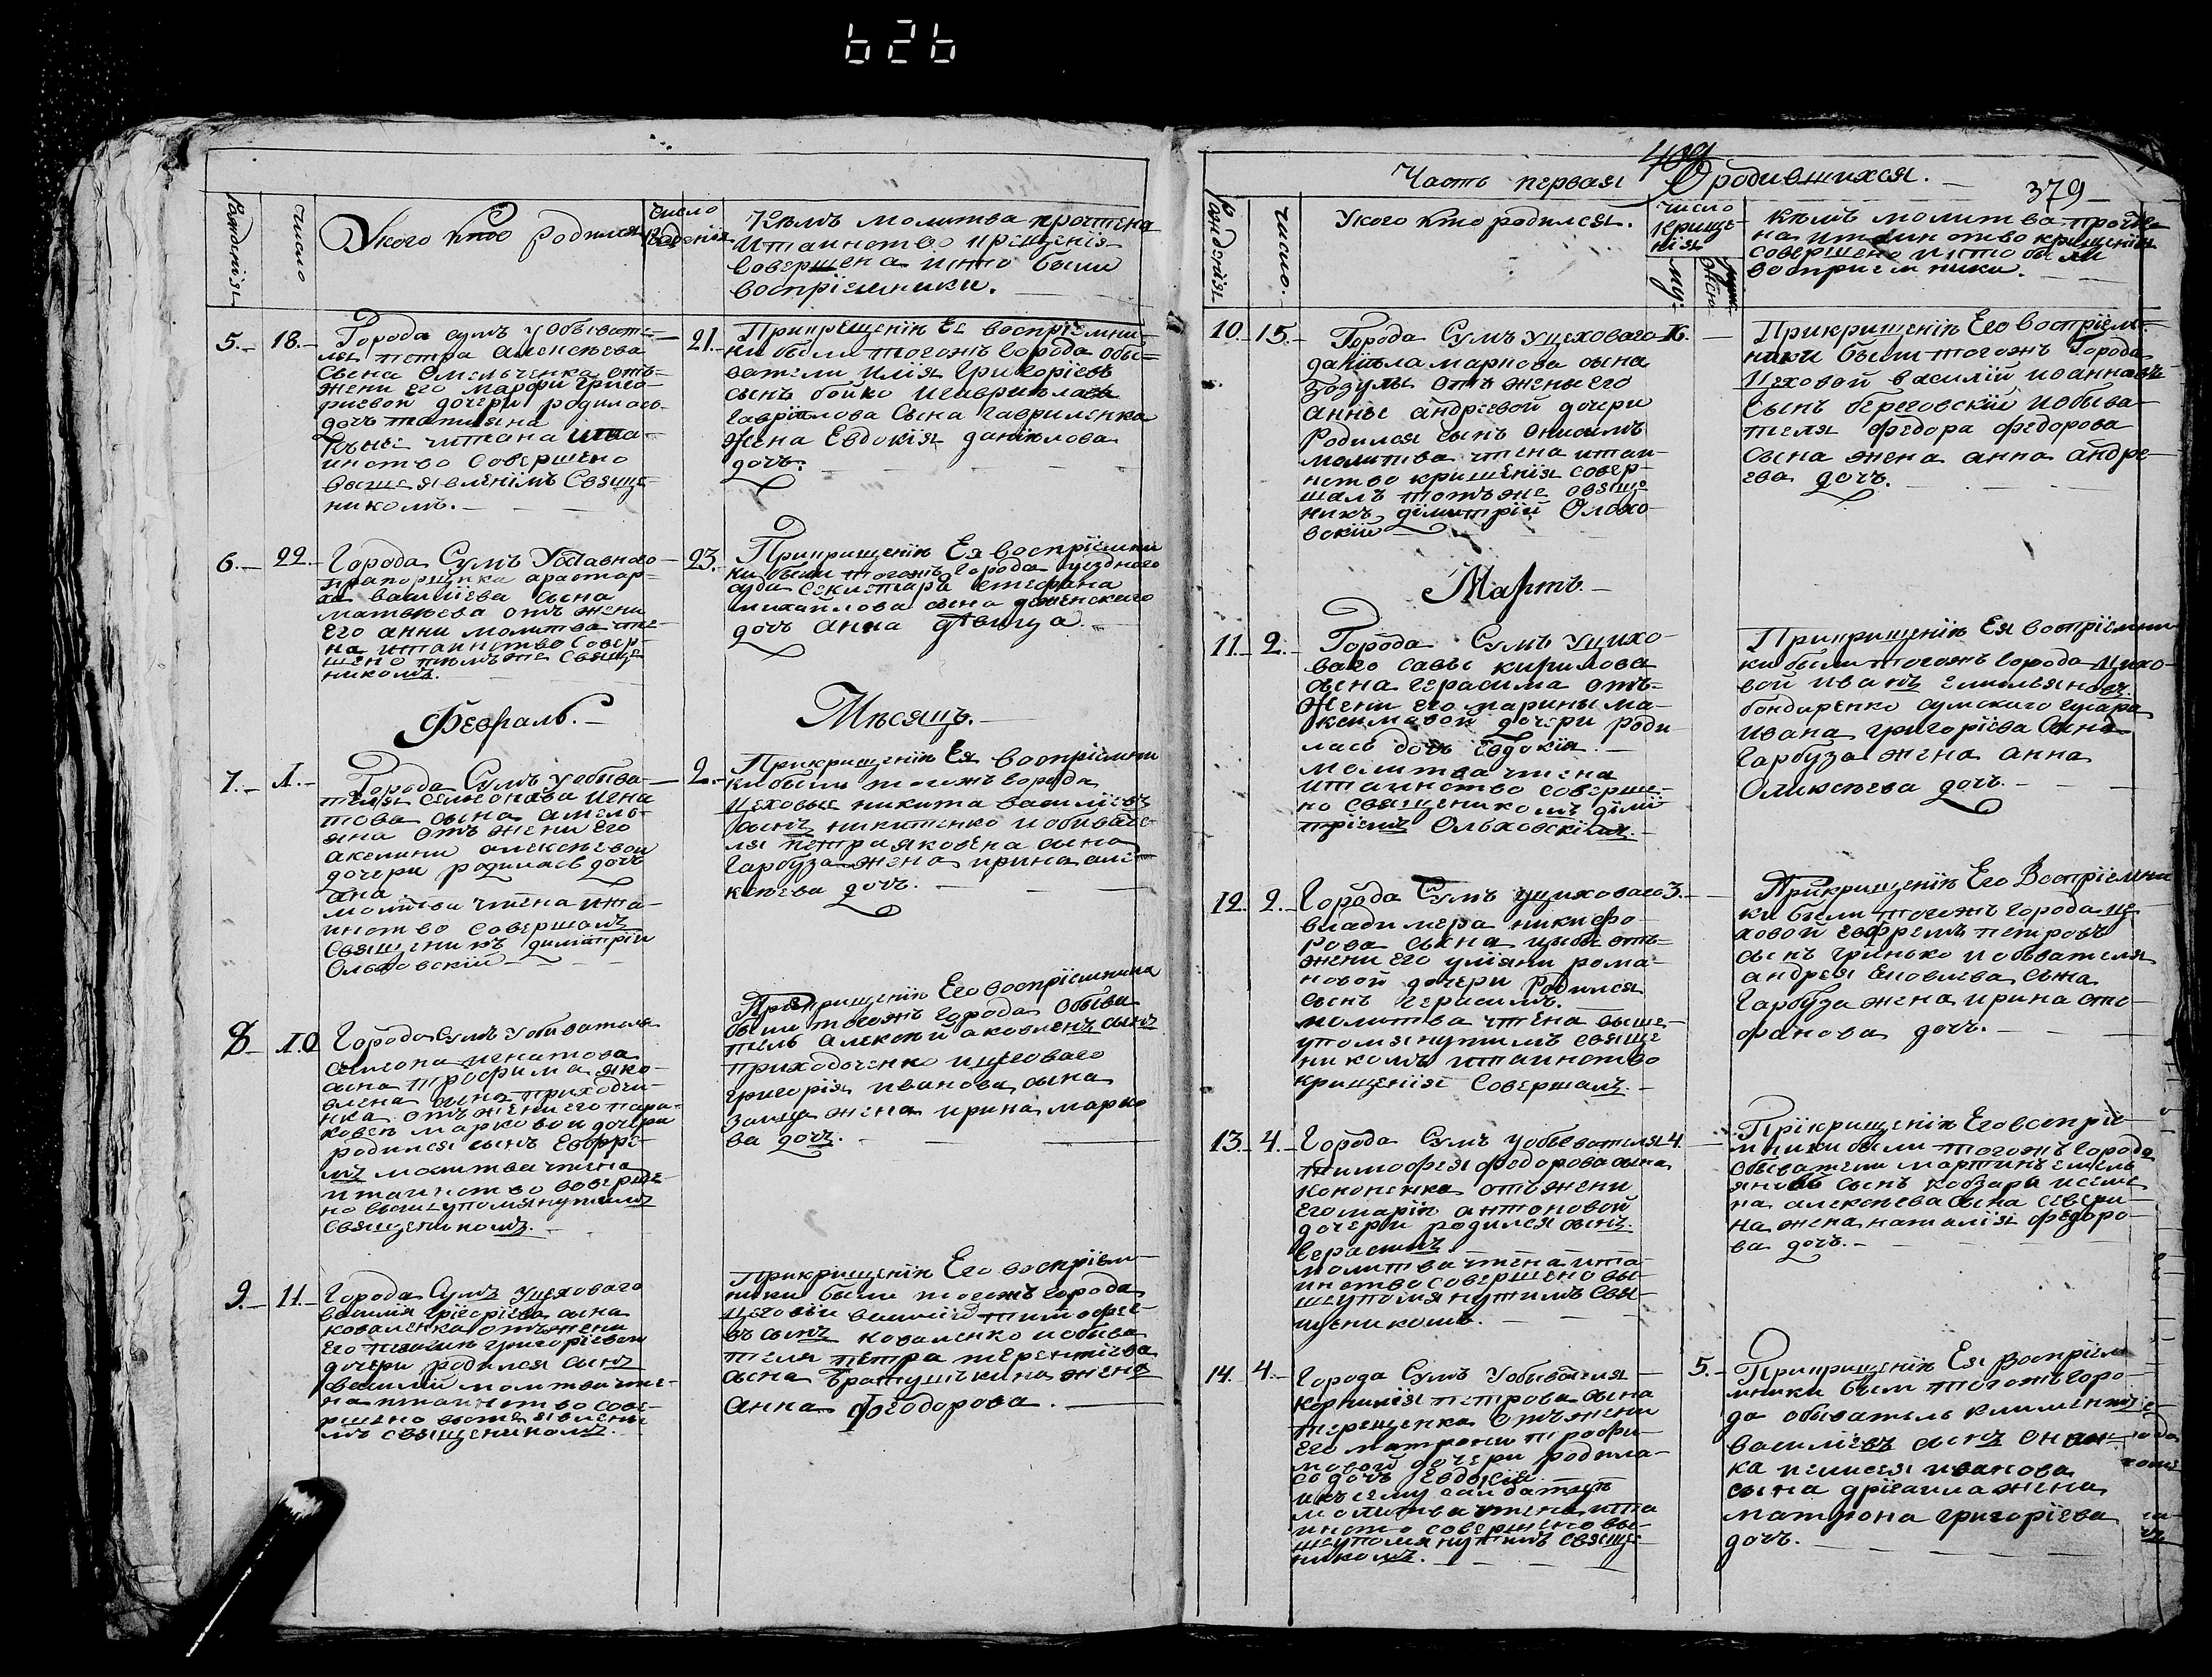 626
Рожденія
Число
Укого кто родился
Число
Кѣмъ молитва прочтена
итаинство крещенія
Совершена икто были
воспріемники.
5.
18.
Города сумъ уобывате-
ля петра алексѣева
Сына Омельченка отъ
жени его марфи григо-
риевой дочери родилась
дочь татияна
читана ита-
инство Совершено
вышеявленімъ Свяще-
никомъ.
21.
Прикрещеніи Ея воспріемни-
ки были тогожъ города обы=
ватели илія григоріевъ
сынъ бойко игавріила
гавріілова Сына гавриленка
жена Евдокія даніилова
дочь.
6.
22.
Города Сумъ
прапорщика аристар-
ха василіева сына
матвѣева отъ жени
Его анни молитва чте-
на итаинство совер-
шено тѣмъже свяще
никомъ.
23.
Прикрищеніи Ея воспріемни
ки были тогожъ города уездного
суда Секретаря стефана
михаилова сына
дочь анна дѣвица.
Февраль.
Мѣсяцъ.
7.
1.
Города Сумъ уобива-
теля игна
това сына амель-
яна отъ жени его
акелини алексѣевои
дочери родилась дочь
ана
молитва чтена ита-
инство совершалъ
Священикъ димитріи
Ольховскій
2.
Прикрищеніи Ея воспріемни
ки были тогожъ города
цеховые никита василіевъ
сынъ никитенко иобивате-
ля петра яковена сына
гарбуза жена ирина але-
ксѣева дочь.
8
10
Города Сумъ уобивателя
симона игнатова
сына трофима яко-
влена сына приходчи-
нка отъ жени его пара-
ковеи марковои дочери
родился сынъ Ефре-
мъ молитва чтена
итаинство соверше-
но вышеупомянутимъ
священикомъ.
Прикрищеніи Его воспріемники
были тогожъ города обыва
тель алексѣй аковленъ сынъ
приходченко ицеховаго
григорія иванова сына
заица жена ирина марко
ва дочь.
9.
11.
Города Сумъ уцеховаго
василія григоріева сына
коваленка отъ жени
Его григоріевои
дочери родился сынъ
василий молитва чте-
на итаинство сове-
ршено вышеявлени
мъ священикомъ.
Прикрищеніи Его воспріем-
ники были тогожъ города
цеговіи василіи тимофее-
въ сынъ коваленко иобыва
теля петра терентіева
сына жена
анна федорова.
Часть первая Ородившихся.
409
379
Рожденія
число.
Укого кто родился.
число
крище-
нія
му:
жен:
кѣмъ молитва прочте
на итаинство крищенія
совершено икто были
воспріемники.
10.
15.
Города Сумъ уцеховаго
даніила маркова сына
зозули отъ жены его
анны андреевой дочери
Родился сынъ онисимъ
молитва чтена итаи-
нство крищенія совер-
шалъ тотъже свяще
никъ димитрій Ольхо-
вскій
16.
Прикрищеніи Его воспріем-
ники были тогожъ города
Цеховой василій иоанновъ
Сынъ береговскій иобыва-
теля федора федорова
Сына жена анна андре-
ева дочь.
Мартъ.
11.
2.
Города Сумъ уцихо-
ваго савы кирилова
сына герасима отъ-
жени его марины ма-
ксимовой дочери роди-
лась дочь Евдокія.
молитва чтена
итаинство соверше-
но священикомъ дими
тріемъ Ольховскімъ.
Прикрищеніи Ея воспріемни
ки были тогожъ города цихо-
вой иванъ емильяновъ
бондиренко сумского гусара
ивана григоріева сына
Гарбуза жена анна
Оликсѣева дочь.
12.
2.
Города Сумъ уциховаго
владимера никифо-
рова сына отъ-
жени его уліяни рома-
новой дочери Родился
сынъ герасимъ.
молитва чтена выше-
упомянутимъ свяще
никомъ итаинство
крищенія Совершалъ.
3.
Прикрищеніи Его Воспріемни
ки были тогожъ города це-
ховой евфремъ петровъ
сынъ гринько иобывателя
андрея яковлева сына
Гарбуза жена ирина сте-
фанова дочь.
13.
4.
Города Сумъ уобывателя
тимофея федорова сына
кононенка отъжени
его маріи антоновой
дочери родился сынъ
герасимъ
молитва чтена ита-
инство совершено вы-
шеупомянутимъ свя-
щеникомъ.
4.
Прікрищеніи Его воспріе-
мники были тогожъ города
обыватели мартинъ емель
яновъ сынъ кобзарь исеме
на алексѣева сына севери-
на жена наталія федоро-
ва дочь.
14.
4.
Города Сумъ уобывателя
корнилія петрова сына
терещенка отъжени
его матрони трофи-
мовой дочери родила-
сь дочь Евдокія
молитва чтена ита
инство совершено вы-
шеупомянутимъ свяще-
никомъ.
5.
Прикрищеніи Ея воспріем-
мники были тогожъ горо-
да обыватель климентіе
василіевъ сынъ
ка иелисея иванова
сына жена
матрона григоріева
дочь.